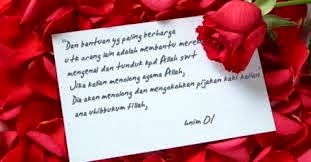 "Dan bantuan yg paling berharga
utk orang lain adalah membantu mereka
mengenal dan tunduk kpd Allah swt
Jika kalian menolong agama Allah,
Dia akan menolong dan mengokohkan pijakan kaki kalian
ana uhibbukum fillah,